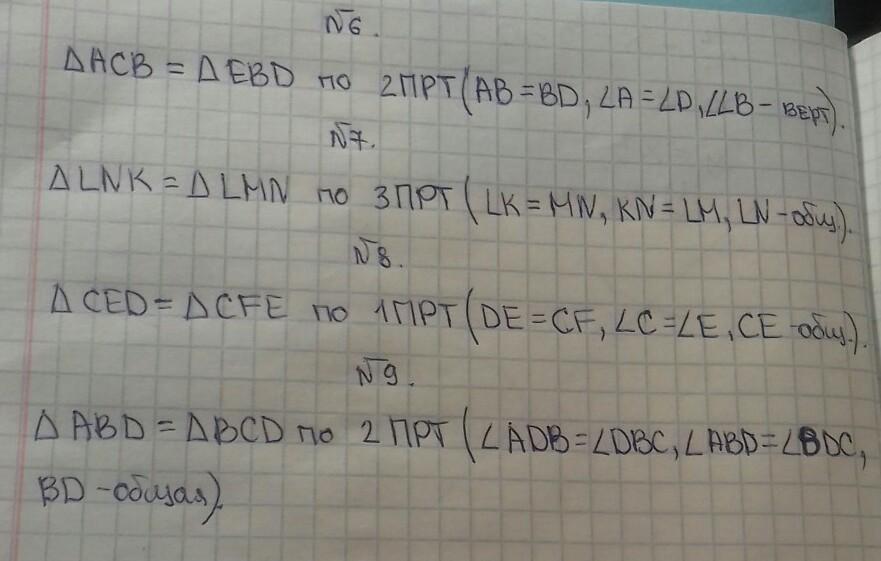 №6.
ΔACB = ΔEBD по 2ПРТ (AB = BD, ∠A = ∠D, ∠∠B - ВЕРТ).
№7.
ΔLNK = ΔLMN по 3ПРТ (LK = MN, KN = LM, LN - общ.).
№8.
ΔCED = ΔCFE по 1ПРТ (DE = CF, ∠C = ∠E, CE - общ.).
№9.
ΔABD = ΔBCD по 2 ПРТ (∠ADB = ∠DBC, ∠ABD = ∠BDC,
BD - общая).